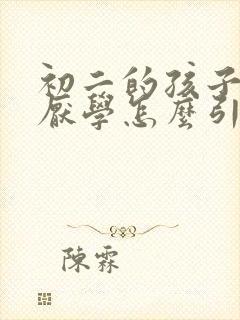 初二的孩子
厭學怎麼引
陳霖